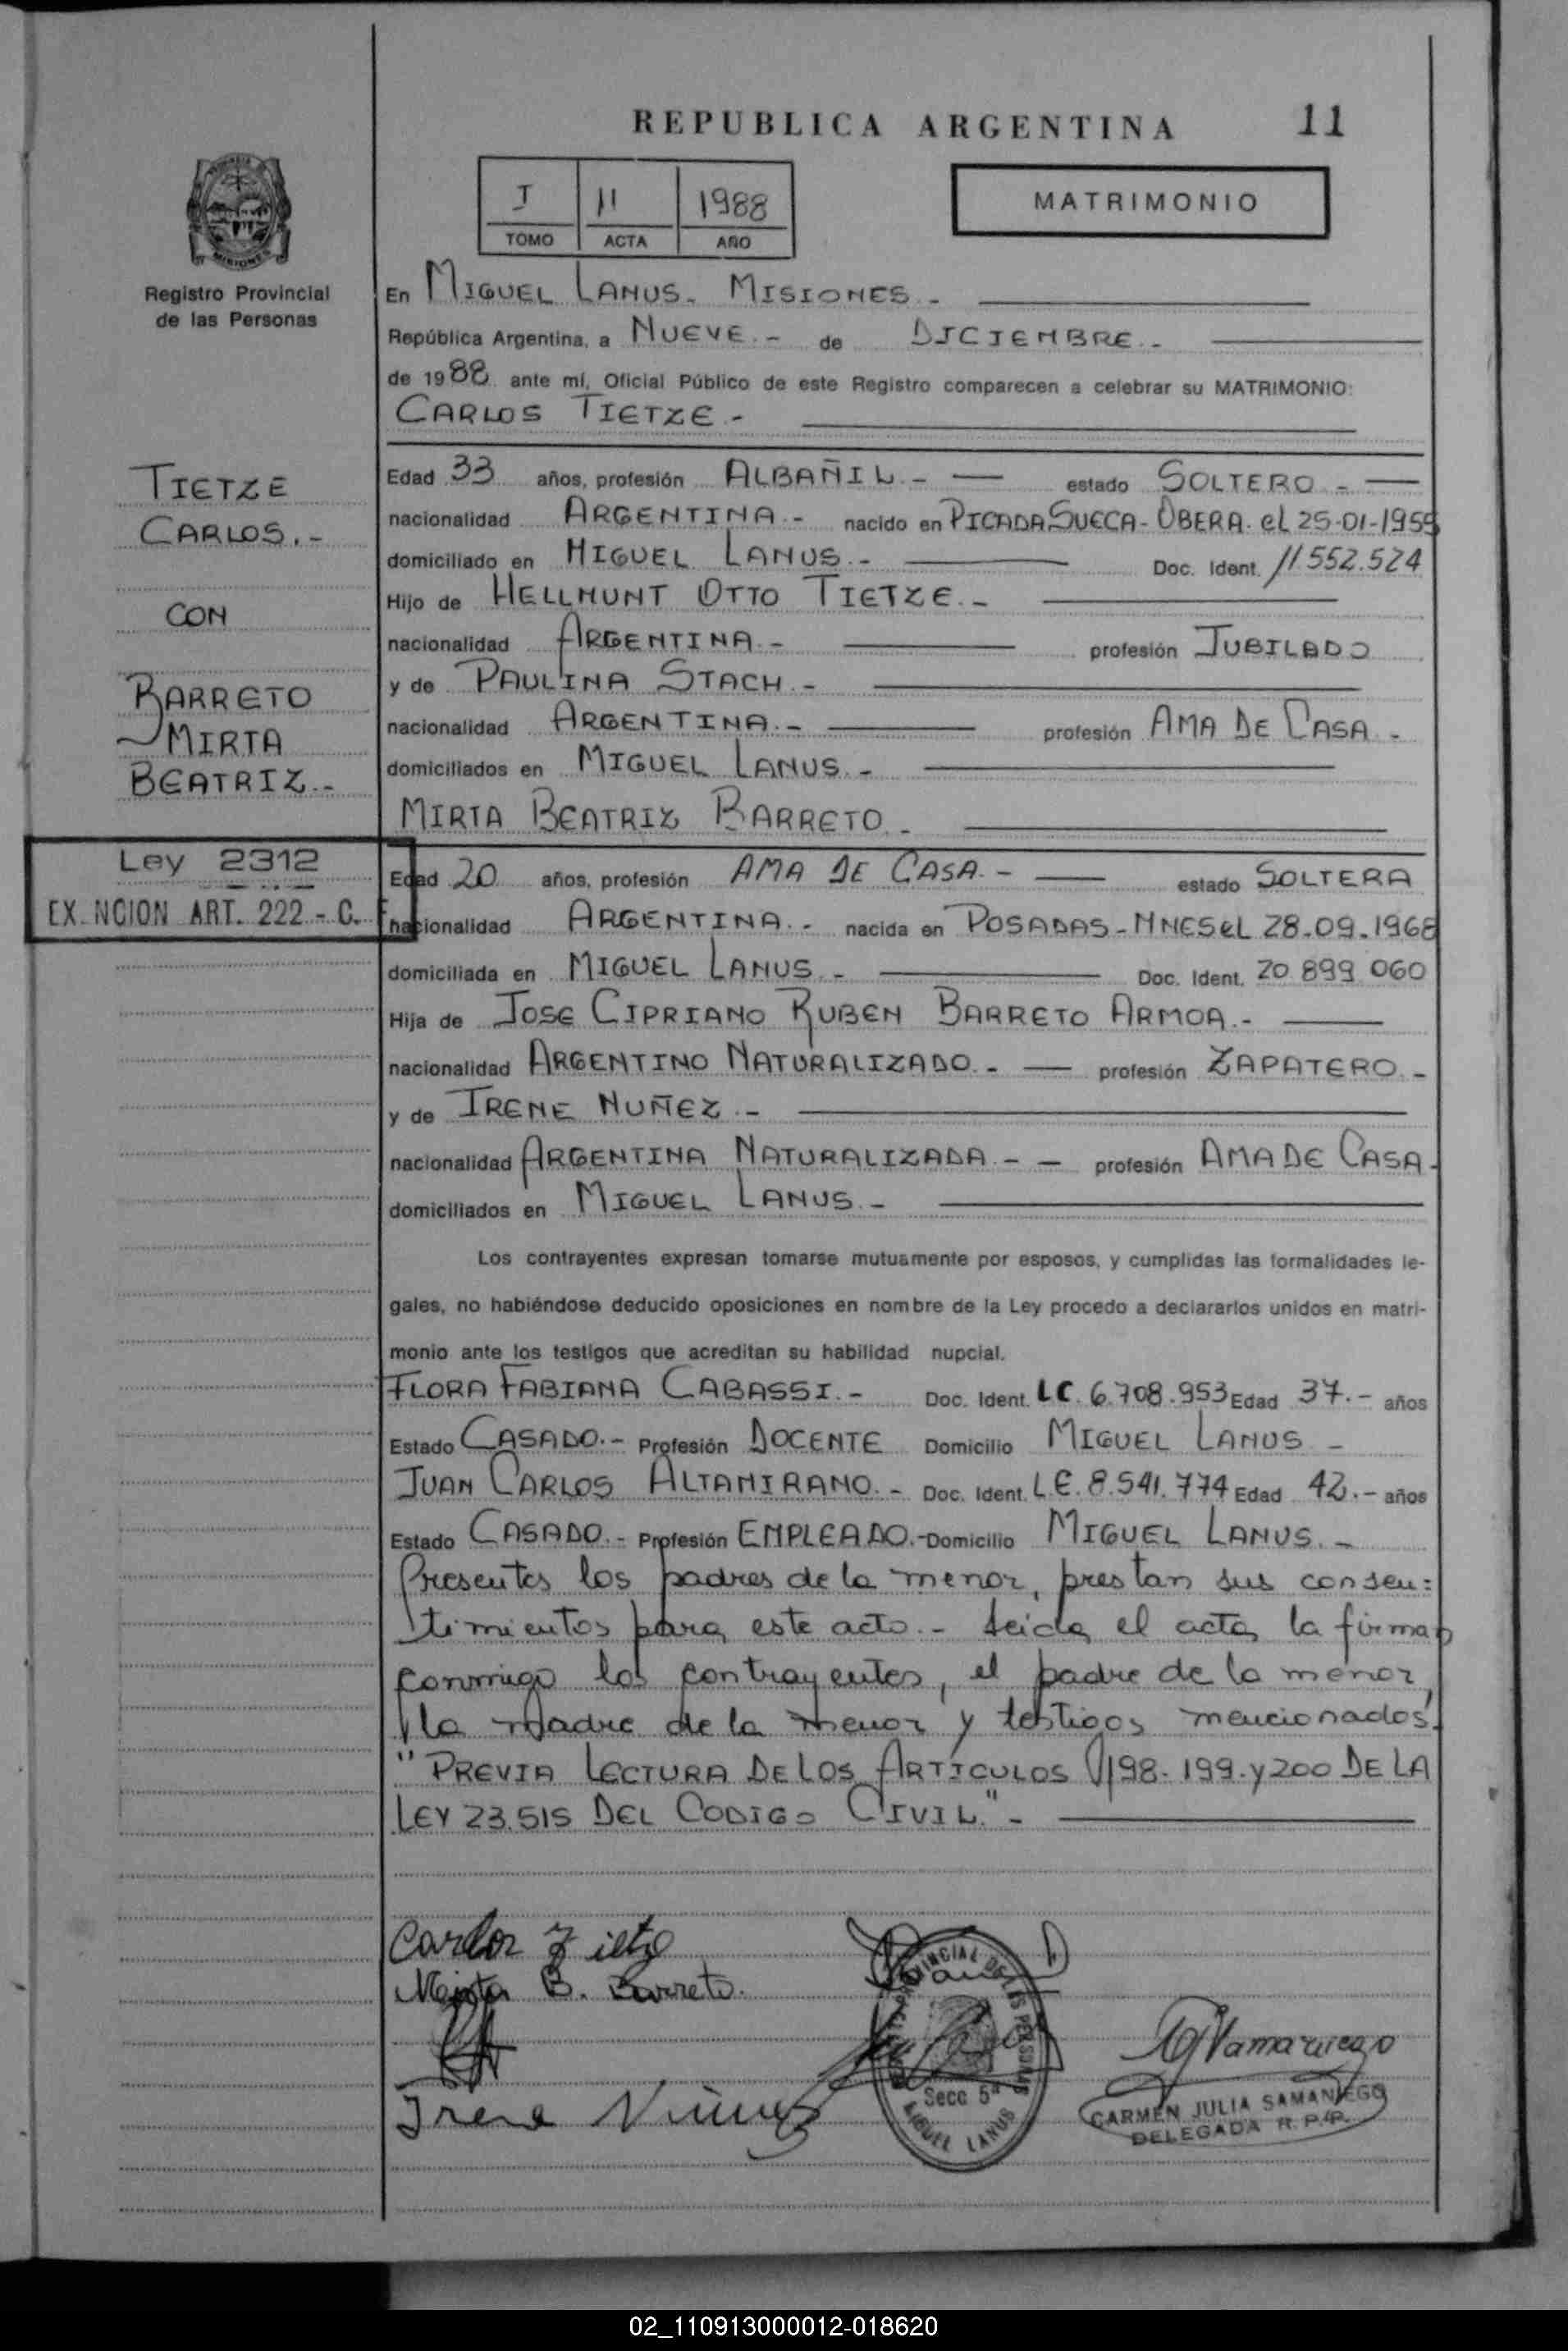 REPUBLICA ARGENTINA 11
I 11 1988
TOMO ACTA AÑO
MATRIMONIO
MISIONES
Registro Provincial
de las Personas
En MIGUEL LANUS - MISIONES.-
República Argentina, a NUEVE.- de DICIEMBRE.-
de 1988 ante mí, Oficial Público de este Registro comparecen a celebrar su MATRIMONIO:
CARLOS TIETZE.-
TIETZE
CARLOS.-
CON
BARRETO
MIRTA
BEATRIZ.-
Ley 2312
EX NCION ART. 222 - C. F
Edad 33 años, profesión ALBAÑIL.- estado SOLTERO.-
nacionalidad ARGENTINA.- nacido en PICADA SUECA - OBERA. el 25-01-1955
domiciliado en MIGUEL LANUS.- Doc. Ident. 11.552.524
Hijo de HELLMUNT OTTO TIETZE.-
nacionalidad ARGENTINA.- profesión JUBILADO
y de PAULINA STACH.-
nacionalidad ARGENTINA.- profesión AMA DE CASA.-
domiciliados en MIGUEL LANUS.-
MIRTA BEATRIZ BARRETO.-
Edad 20 años, profesión AMA DE CASA.- estado SOLTERA
nacionalidad ARGENTINA.- nacida en POSADAS - MNES el 28-09-1968
domiciliada en MIGUEL LANUS.- Doc. Ident. 20.899.060
Hija de JOSE CIPRIANO RUBEN BARRETO ARMOA.-
nacionalidad ARGENTINO NATURALIZADO.- profesión ZAPATERO.-
y de IRENE NUÑEZ.-
nacionalidad ARGENTINA NATURALIZADA.- - profesión AMA DE CASA.-
domiciliados en MIGUEL LANUS.-
Los contrayentes expresan tomarse mutuamente por esposos, y cumplidas las formalidades le-
gales, no habiéndose deducido oposiciones en nombre de la Ley procedo a declararlos unidos en matri-
monio ante los testigos que acreditan su habilidad nupcial.
FLORA FABIANA CABASSI.- Doc. Ident. LC. 6.708.953 Edad 37.- años
Estado CASADO.- Profesión DOCENTE Domicilio MIGUEL LANUS -
JUAN CARLOS ALTAMIRANO.- Doc. Ident. L.E. 8.541.774 Edad 42.- años
Estado CASADO.- Profesión EMPLEADO.- Domicilio MIGUEL LANUS.-
Presentes los padres de la menor, prestan sus consen=
timientos para este acto.- Leida el acta la firman
conmigo los contrayentes, el padre de la menor,
y la madre de la menor y testigos mencionados.
"PREVIA LECTURA DE LOS ARTICULOS 198. 199. y 200 DE LA
LEY 23.515 DEL CODIGO CIVIL".-
Carlos Tietze
Mirta B. Barreto.
Irene Nuñez
Secc 5ª
MIGUEL LANUS
CARMEN JULIA SAMANIEGO
DELEGADA R.P.P.
02_110913000012-018620